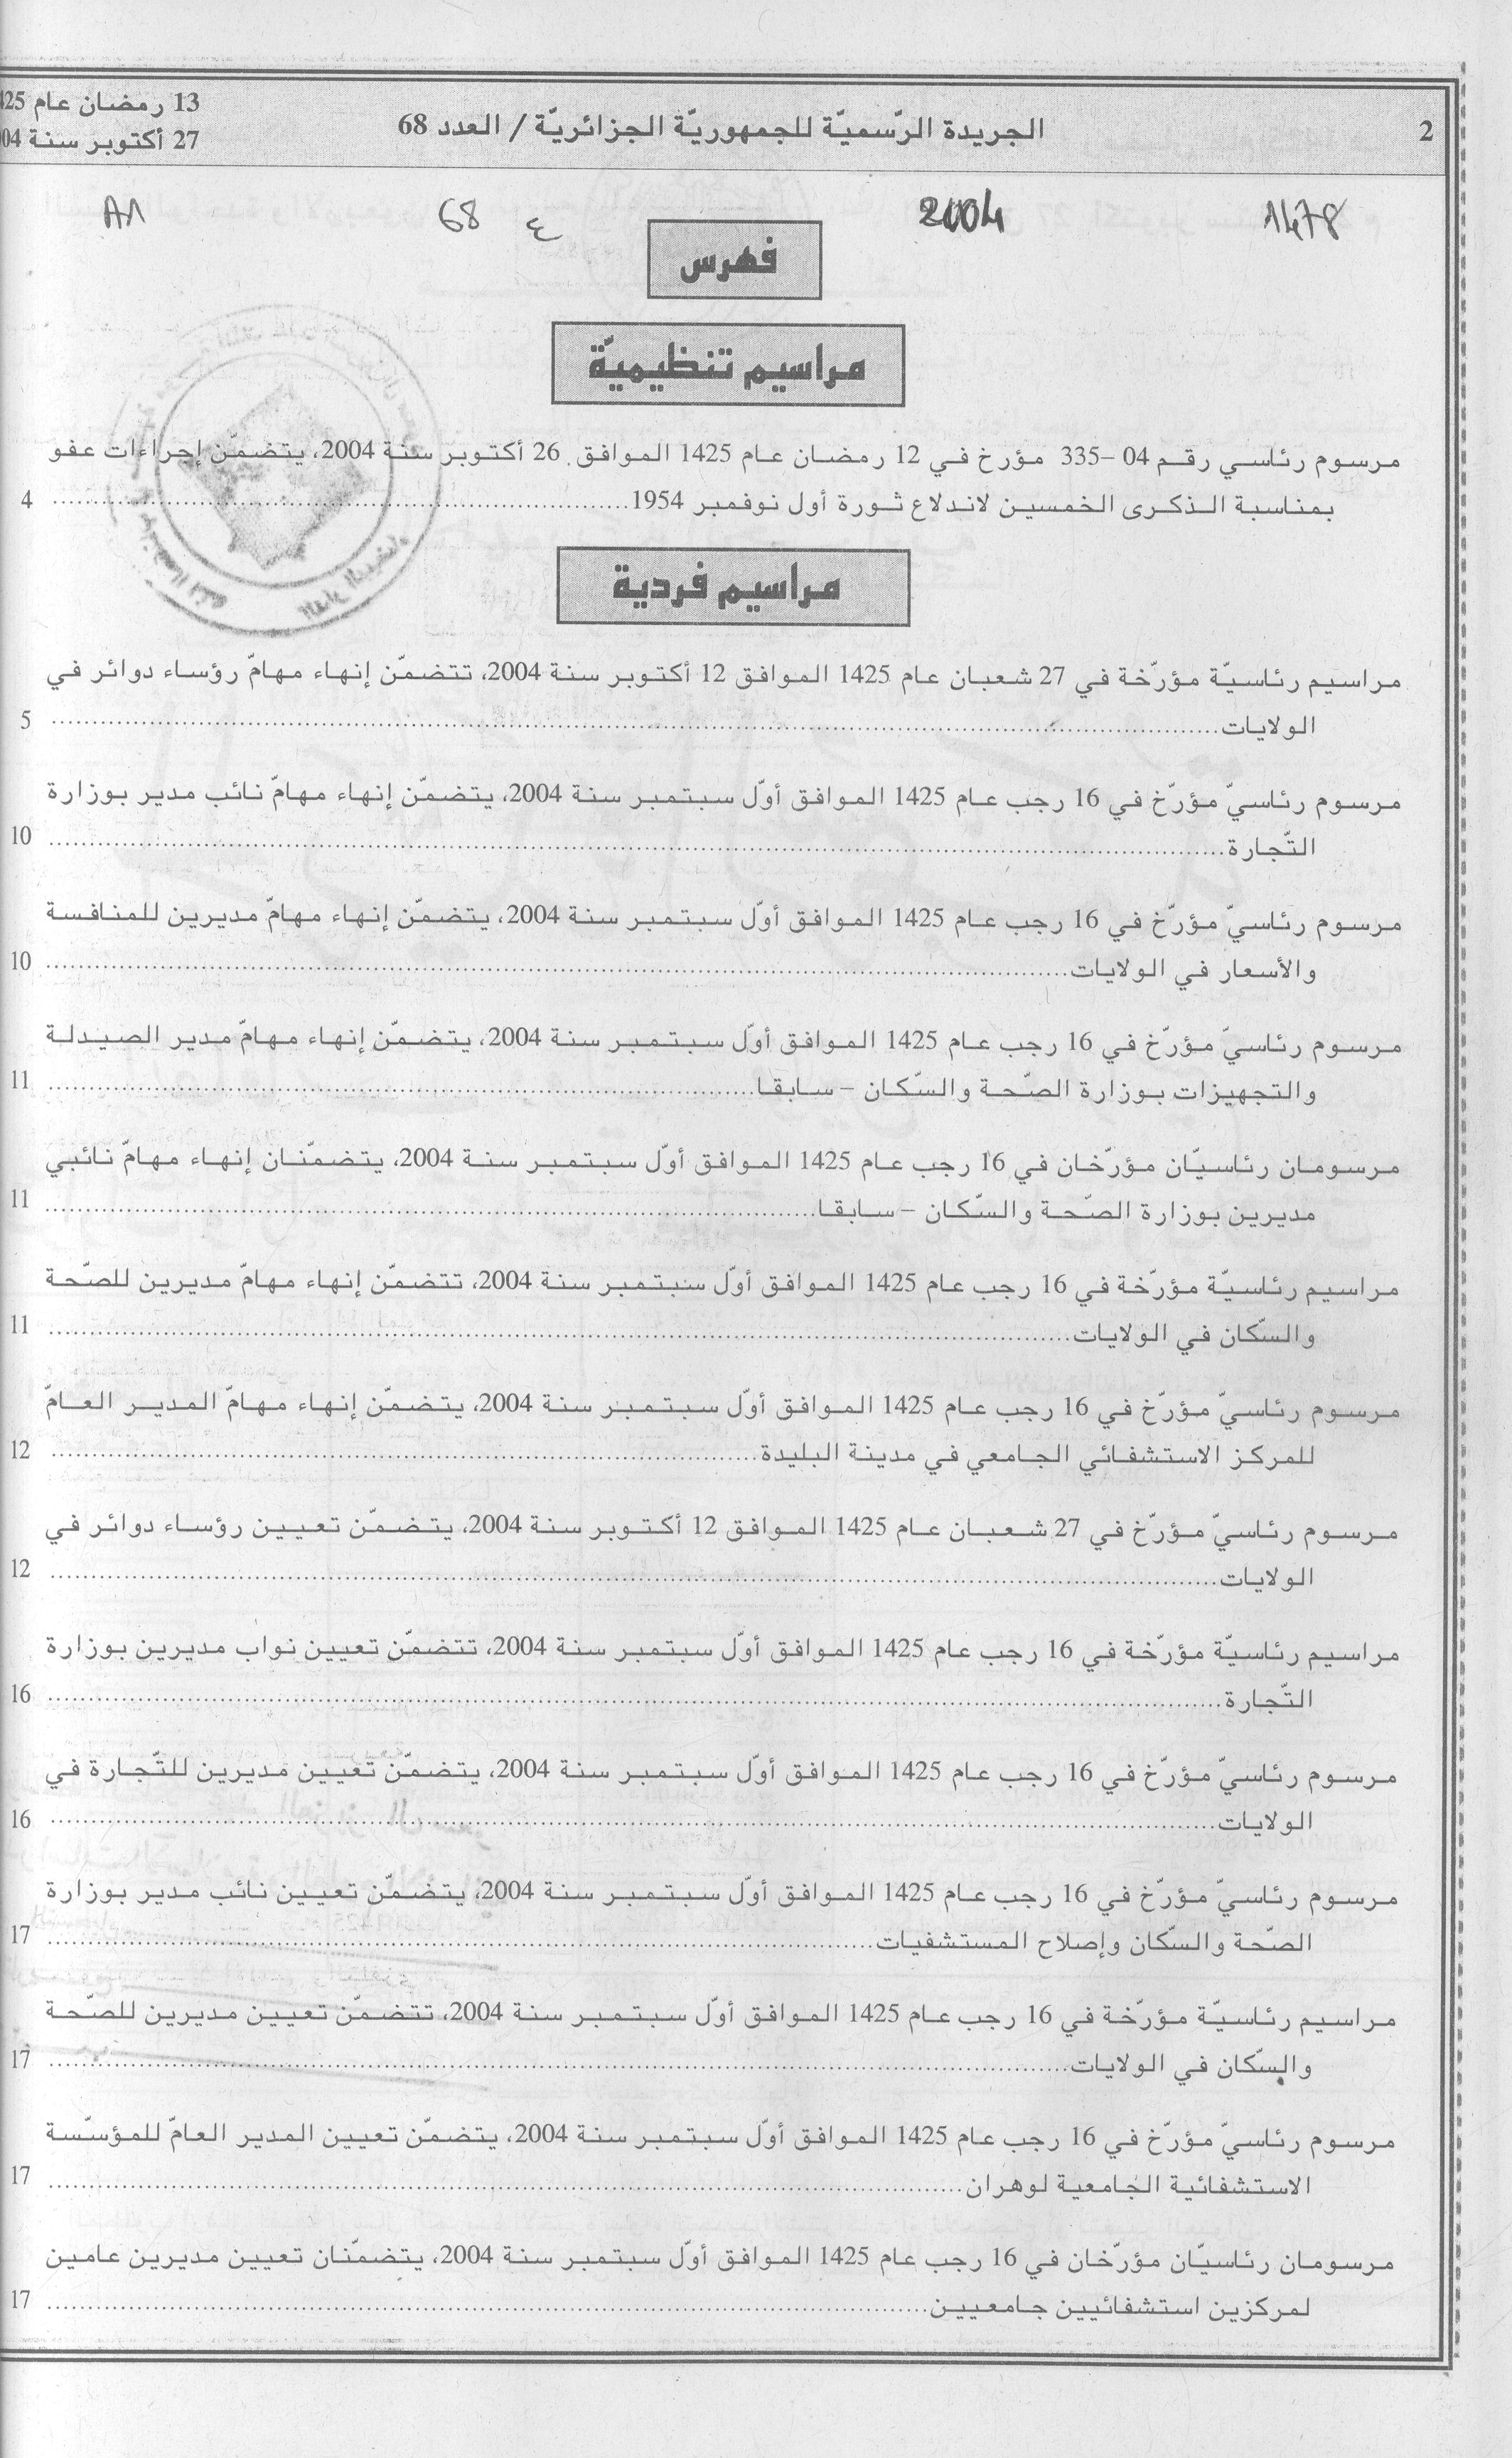 2
الجريدة الرّسميّة للجمهوريّة الجزائريّة / العدد 68
13 رمضان عام
27 أكتوبر سنة
1478
2004
ع
68
A1
فهرس
مراسيم تنظيميّة
مرسوم رئاسي رقم 04 -335 مؤرخ في 12 رمضان عام 1425 الموافق 26 أكتوبر سنة 2004، يتضمّن إجراءات عفو
بمناسبة الذكرى الخمسين لاندلاع ثورة أول نوفمبر 1954 4
مراسيم فردية
مراسيم رئاسيّة مؤرّخة في 27 شعبان عام 1425 الموافق 12 أكتوبر سنة 2004، تتضمّن إنهاء مهامّ رؤساء دوائر في
الولايات 5
مرسوم رئاسيّ مؤرّخ في 16 رجب عام 1425 الموافق أوّل سبتمبر سنة 2004، يتضمّن إنهاء مهامّ نائب مدير بوزارة
التّجارة 10
مرسوم رئاسيّ مؤرّخ في 16 رجب عام 1425 الموافق أوّل سبتمبر سنة 2004، يتضمّن إنهاء مهامّ مديرين للمنافسة
والأسعار في الولايات 10
مرسوم رئاسيّ مؤرّخ في 16 رجب عام 1425 الموافق أوّل سبتمبر سنة 2004، يتضمّن إنهاء مهامّ مدير الصيدلة
والتجهيزات بوزارة الصّحة والسّكان – سابقا 11
مرسومان رئاسيّان مؤرّخان في 16 رجب عام 1425 الموافق أوّل سبتمبر سنة 2004، يتضمّنان إنهاء مهامّ نائبي
مديرين بوزارة الصّحة والسّكان – سابقا 11
مراسيم رئاسيّة مؤرّخة في 16 رجب عام 1425 الموافق أوّل سبتمبر سنة 2004، تتضمّن إنهاء مهامّ مديرين للصّحة
والسّكان في الولايات 11
مرسوم رئاسيّ مؤرّخ في 16 رجب عام 1425 الموافق أوّل سبتمبر سنة 2004، يتضمّن إنهاء مهامّ المدير العامّ
للمركز الاستشفائي الجامعي في مدينة البليدة 12
مرسوم رئاسيّ مؤرّخ في 27 شعبان عام 1425 الموافق 12 أكتوبر سنة 2004، يتضمّن تعيين رؤساء دوائر في
الولايات 12
مراسيم رئاسيّة مؤرّخة في 16 رجب عام 1425 الموافق أوّل سبتمبر سنة 2004، تتضمّن تعيين نواب مديرين بوزارة
التّجارة 16
مرسوم رئاسيّ مؤرّخ في 16 رجب عام 1425 الموافق أوّل سبتمبر سنة 2004، يتضمّن تعيين مديرين للتّجارة في
الولايات 16
مرسوم رئاسيّ مؤرّخ في 16 رجب عام 1425 الموافق أوّل سبتمبر سنة 2004، يتضمّن تعيين نائب مدير بوزارة
الصّحة والسّكان وإصلاح المستشفيات 17
مراسيم رئاسيّة مؤرّخة في 16 رجب عام 1425 الموافق أوّل سبتمبر سنة 2004، تتضمّن تعيين مديرين للصّحة
والسّكان في الولايات 17
مرسوم رئاسيّ مؤرّخ في 16 رجب عام 1425 الموافق أوّل سبتمبر سنة 2004، يتضمّن تعيين المدير العامّ للمؤسّسة
الاستشفائية الجامعية لوهران 17
مرسومان رئاسيّان مؤرّخان في 16 رجب عام 1425 الموافق أوّل سبتمبر سنة 2004، يتضمّنان تعيين مديرين عامين
لمركزين استشفائيين جامعيين 17